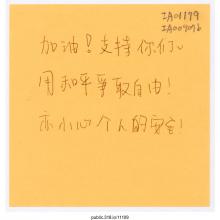 IA01179
加油！支持你们
用和平爭取自由！
亦小心个人的安全！
public.318.io/11189